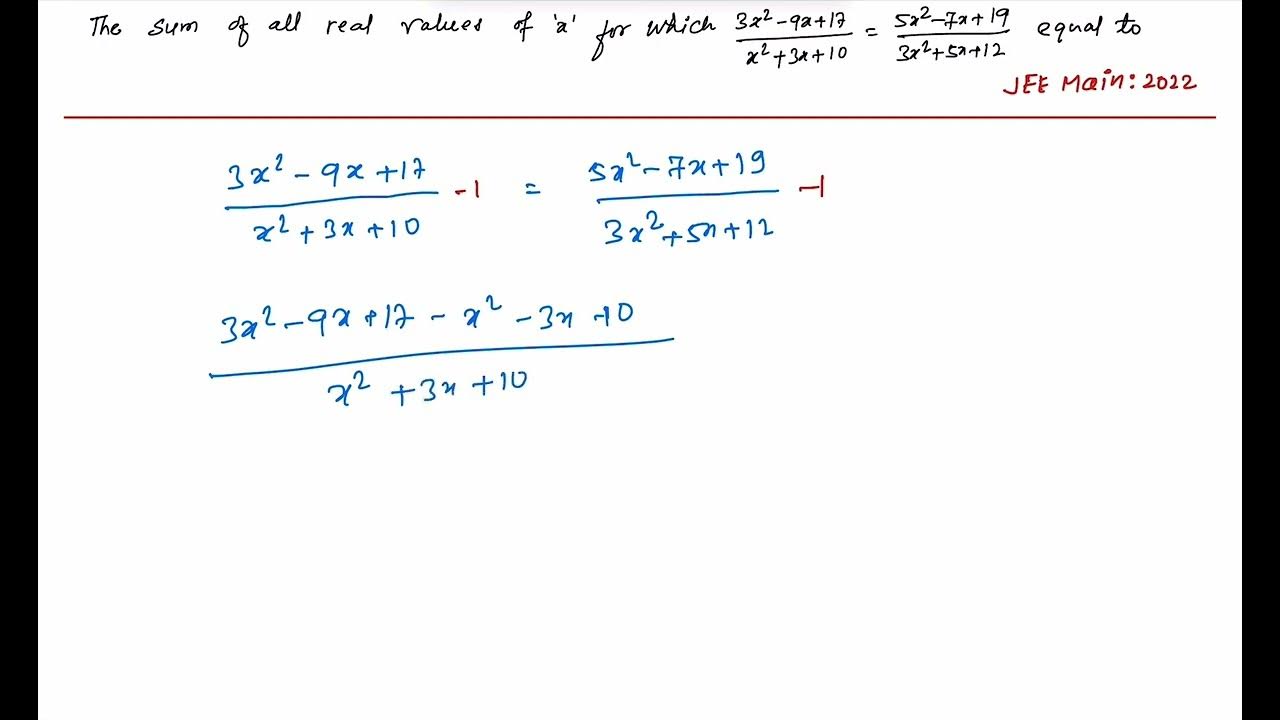 The sum of all real values of 'x' for which (3x² - 9x + 17)/(x² + 3x + 10) = (5x² - 7x + 19)/(3x² + 5x + 12) equal to
JEE Main: 2022
(3x² - 9x + 17)/(x² + 3x + 10) - 1 = (5x² - 7x + 19)/(3x² + 5x + 12) - 1
(3x² - 9x + 17 - x² - 3x - 10)/(x² + 3x + 10)